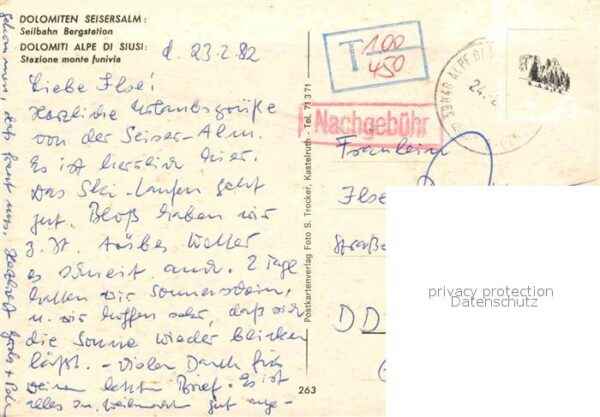 DOLOMITEN SEISERALM:
Seilbahn Bergstation
DOLOMITI ALPE DI SIUSI:
Stazione monte funivia
d. 23.2.82
Liebe Ilse!
Herzliche Urlaubsgrüße
von der Seiser-Alm.
Es ist herrlich hier.
Das Ski-Laufen geht
gut. Bloß haben wir
z.Zt. trübes Wetter
es schneit auch. 2 Tage
hatten wir Sonnenschein,
u. wir hoffen sehr, daß sich
die Sonne wieder blicken
läßt. - Vielen Dank für
Deinen letzten Brief. Es ist
alles zu Weihnacht gut ange-
schon muss, das freut uns. Herzlichst
Postkartenverlag Foto S. Trocker, Kastelruth - Tel. 71371
263
T 100
450
Nachgebühr
39040 ALPE DI
24.2
Fräulein
Ilse
Straße
DD
privacy protection
Datenschutz